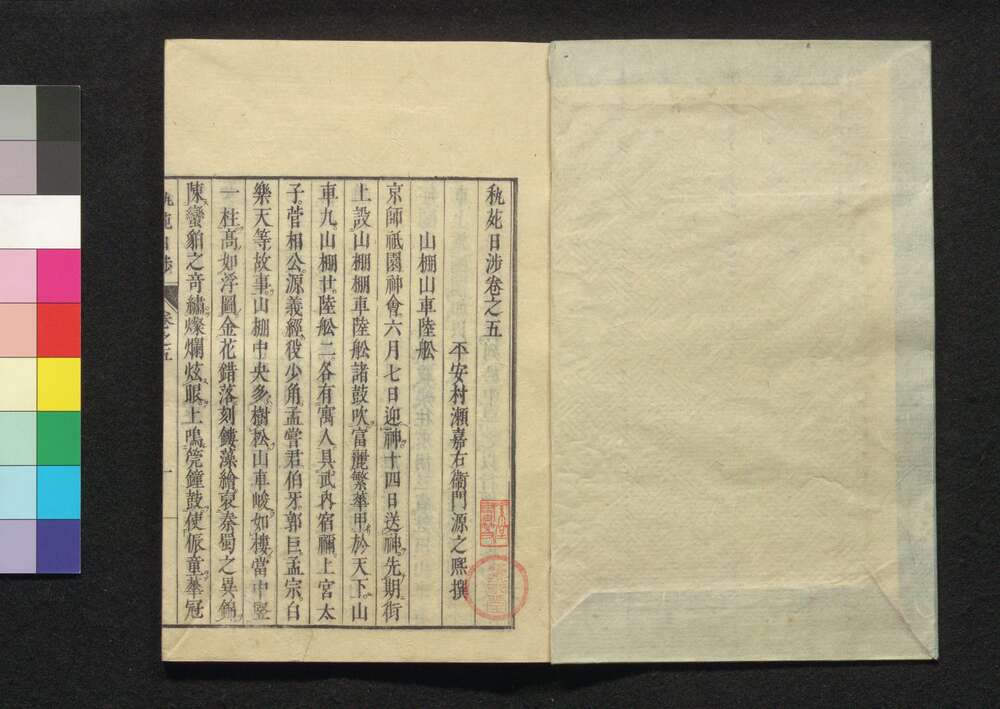 秇苑日渉卷之五
平安村瀬嘉右衞門源之熙撰
山棚山車陸舩
京師祇園神會六月七日迎神十四日送神先期街
上設山棚棚車陸舩諸鼓吹富麗繁華甲於天下山
車九山棚廿陸舩二各有寓人具武内宿禰上宮太
子菅相公源義經役少角孟嘗君伯牙郭巨孟宗白
樂天等故事山棚中央多樹松山車峻如樓當中竪
一柱髙如浮圖金花錯落刻鏤藻繪裒秦蜀之異錦
陳蠻貊之竒繡燦爛炫眼上鳴箢鐘鼓使侲童華冠
秇苑日渉
卷之五
一